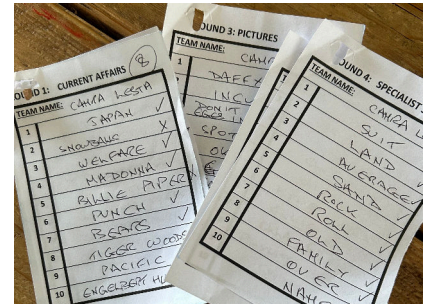 ROUND 1: CURRENT AFFAIRS
8
TEAM NAME: CAMRA LESTA
1 JAPAN
2 SNOWBANG
3 WELFARE
4 MADONNA
5 BILLIE PIPER
6 PUNCH
7 BEARS
8 TIGER WOODS
9 PACIFIC
10 ENGELBERT HU
OUND 3: PICTURES
TEAM NAME: CAMR
1 DAFFY
2 INCU
3 DON'T
EGGS IN
4 SPOT
5 OU
OUND 4: SPECIALIST
TEAM NAME: CAMRA L
1 SUIT
2 LAND
3 AVERAGE
4 SAND
5 ROCK
6 ROLL
7 OLD
8 FAMILY
9 OVER
10 NAME